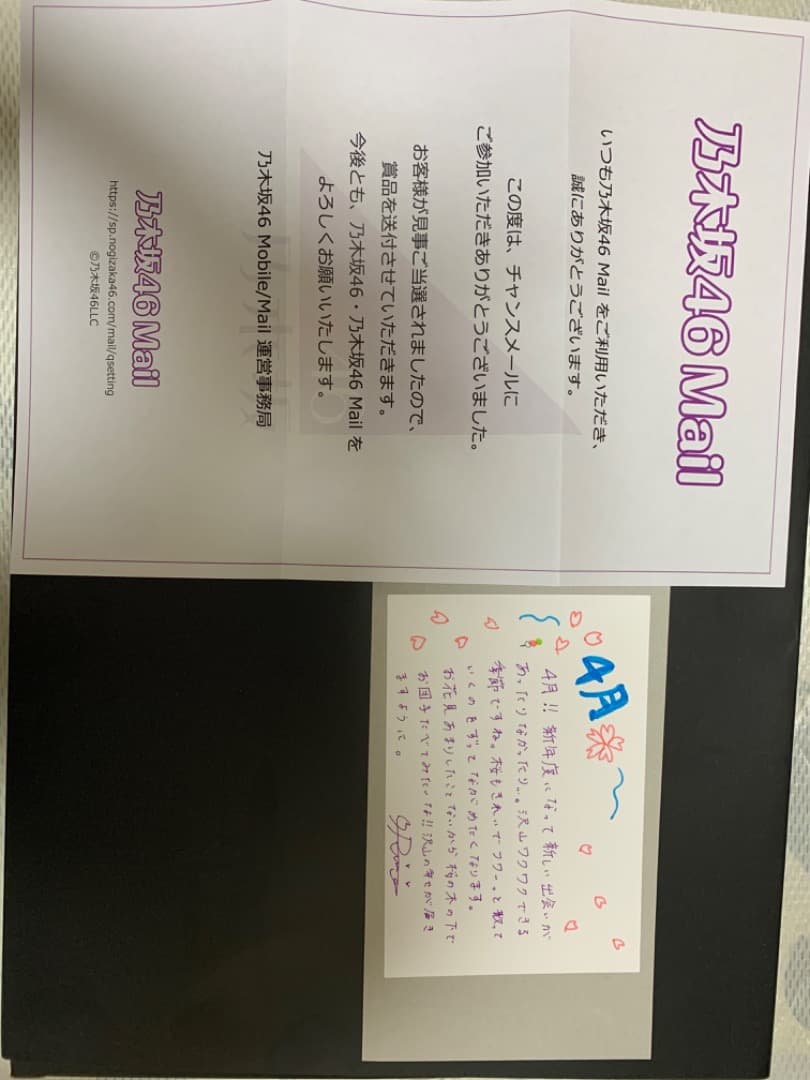 乃木坂46 Mail
いつも乃木坂46 Mail をご利用いただき、
誠にありがとうございます。
この度は、チャンスメールに
ご参加いただきありがとうございました。
お客様が見事ご当選されましたので、
賞品を送付させていただきます。
今後とも、乃木坂46・乃木坂46 Mail を
よろしくお願いいたします。
乃木坂46 Mobile/Mail 運営事務局
乃木坂46 Mail
https://sp.nogizaka46.com/mail/qsetting
©乃木坂46LLC
4月
4月!! 新年度になって新しい出会いが
あったりなかったり…。沢山ワクワクできる
季節ですね。桜もきれいでフワーっと散って
いくのをずっとながめたくなります。
お花見あまりしたことないから桜の木の下で
お団子たべてみたいな!! 沢山の幸せが届き
ますように。